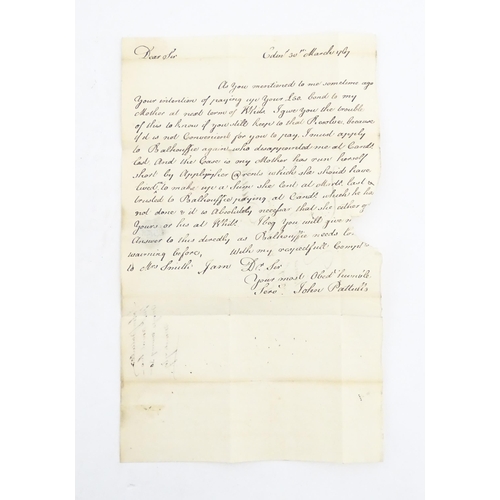 Dear Sir Edinr 30th March 1767
As you mentioned to me sometime ago
Your intention of paying up your £60 bond to my
Mother at next term of Whits. I give you the trouble
of this to know if you still keep to that Resolve, because
if it is not Convenient for you to pay, I must apply
to Balhouffie again, who disappointed me at Candls
last And the Case is my Mother has run herself
short by Applying her @rents which she should have
lived, to make up a Sum she lent at Mart. last &
trusted to Balhouffie paying at Cand. which he ha
not done & it is Absolutely necessar that she either g
Yours or his at Whit. I beg You will give m
Answer to this directly as Balhouffie needs lo
warning before, With my respectfull Compts
to Mrs Smith I am Dr. Sir
Your most Obedt humble
Servt John Pattullo